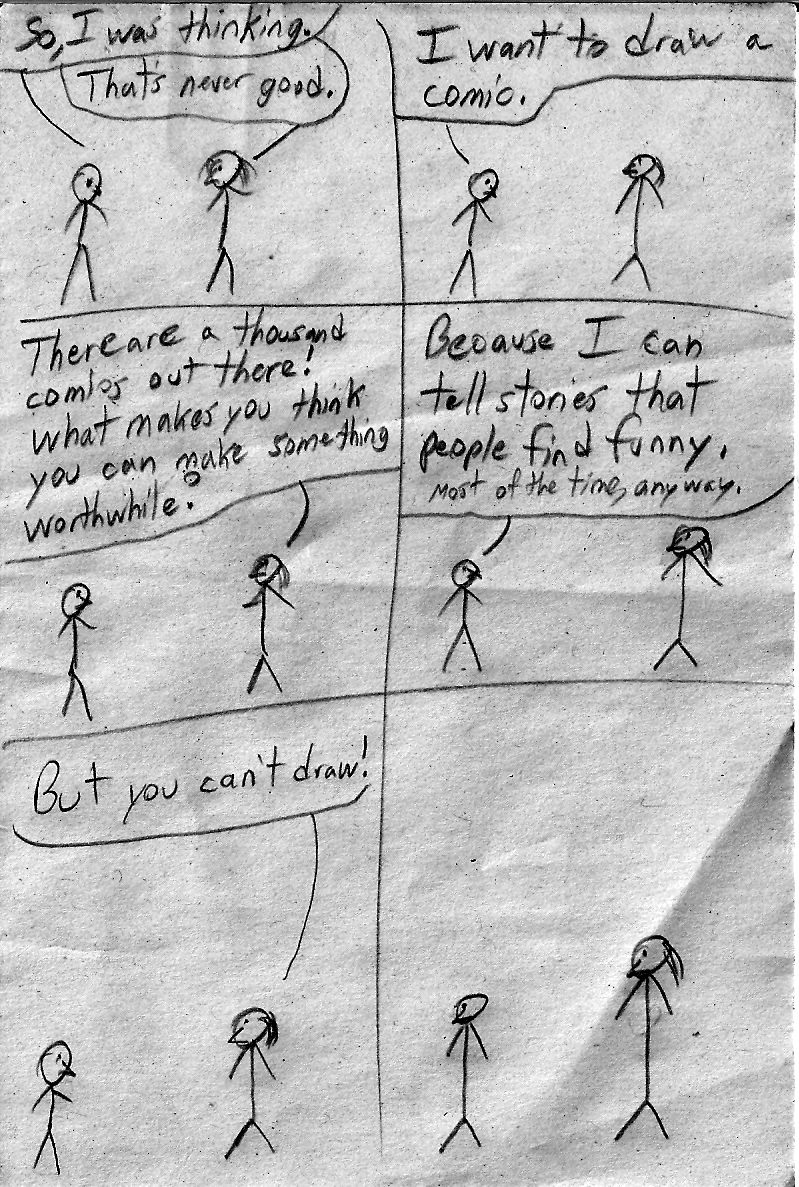 So, I was thinking.
That's never good.
I want to draw a
comic.
There are a thousand
comics out there!
What makes you think
you can make something
worthwhile?
Because I can
tell stories that
people find funny.
Most of the time, anyway.
But you can't draw!